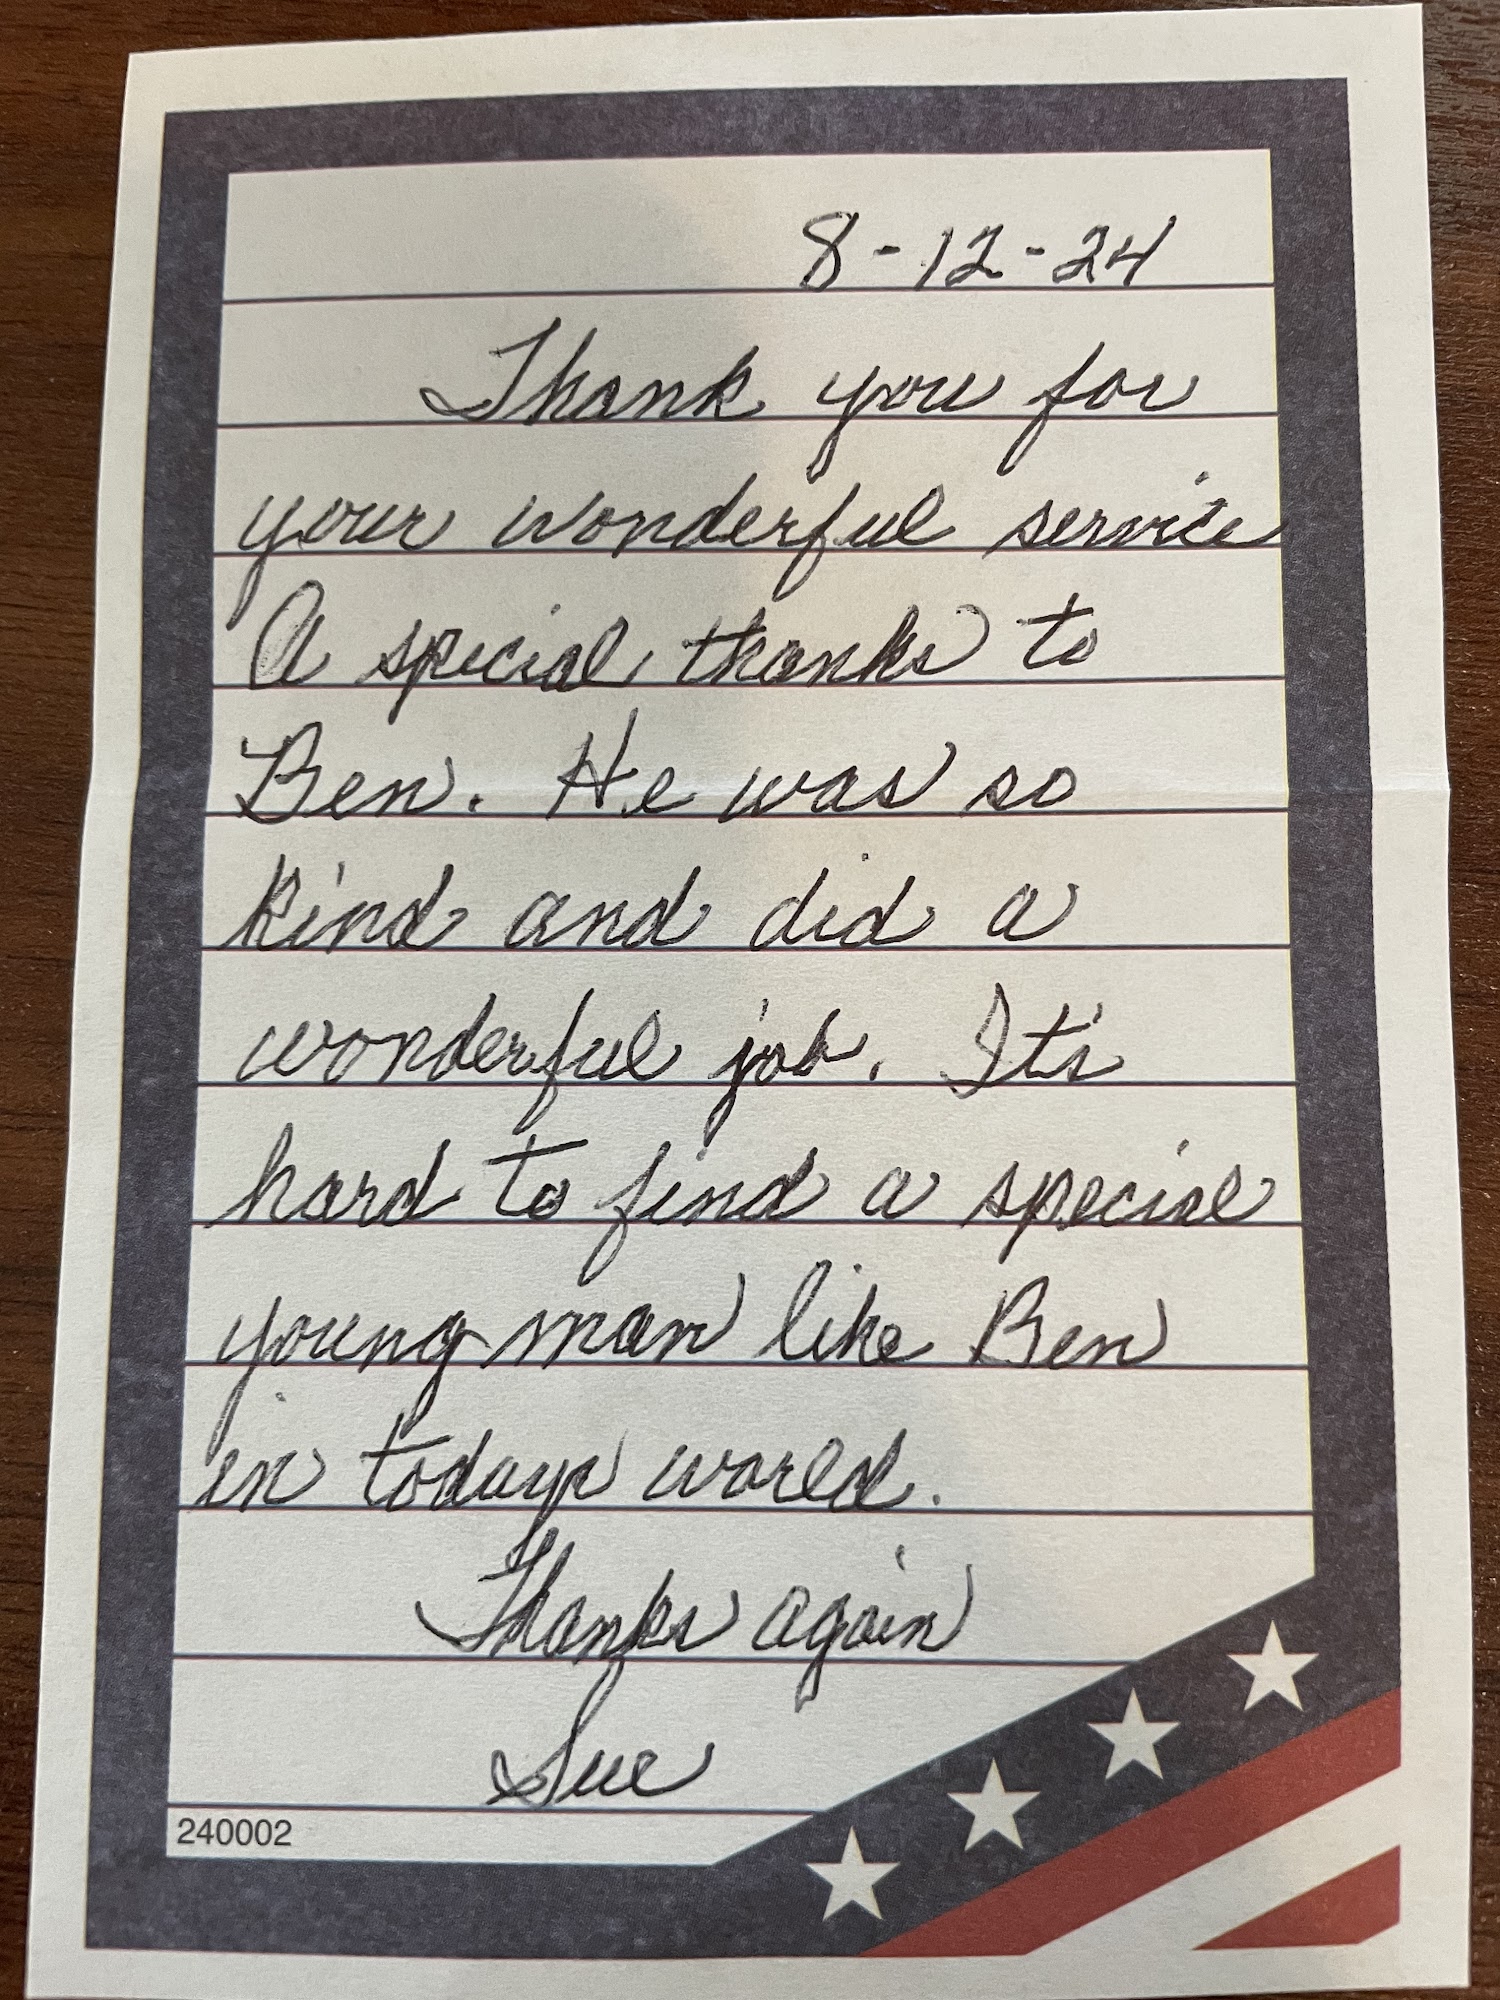 8-12-24
Thank you for
your wonderful service
A special thanks to
Ben. He was so
kind and did a
wonderful job. It's
hard to find a special
young man like Ben
in todays world.
Thanks again
Sue
240002